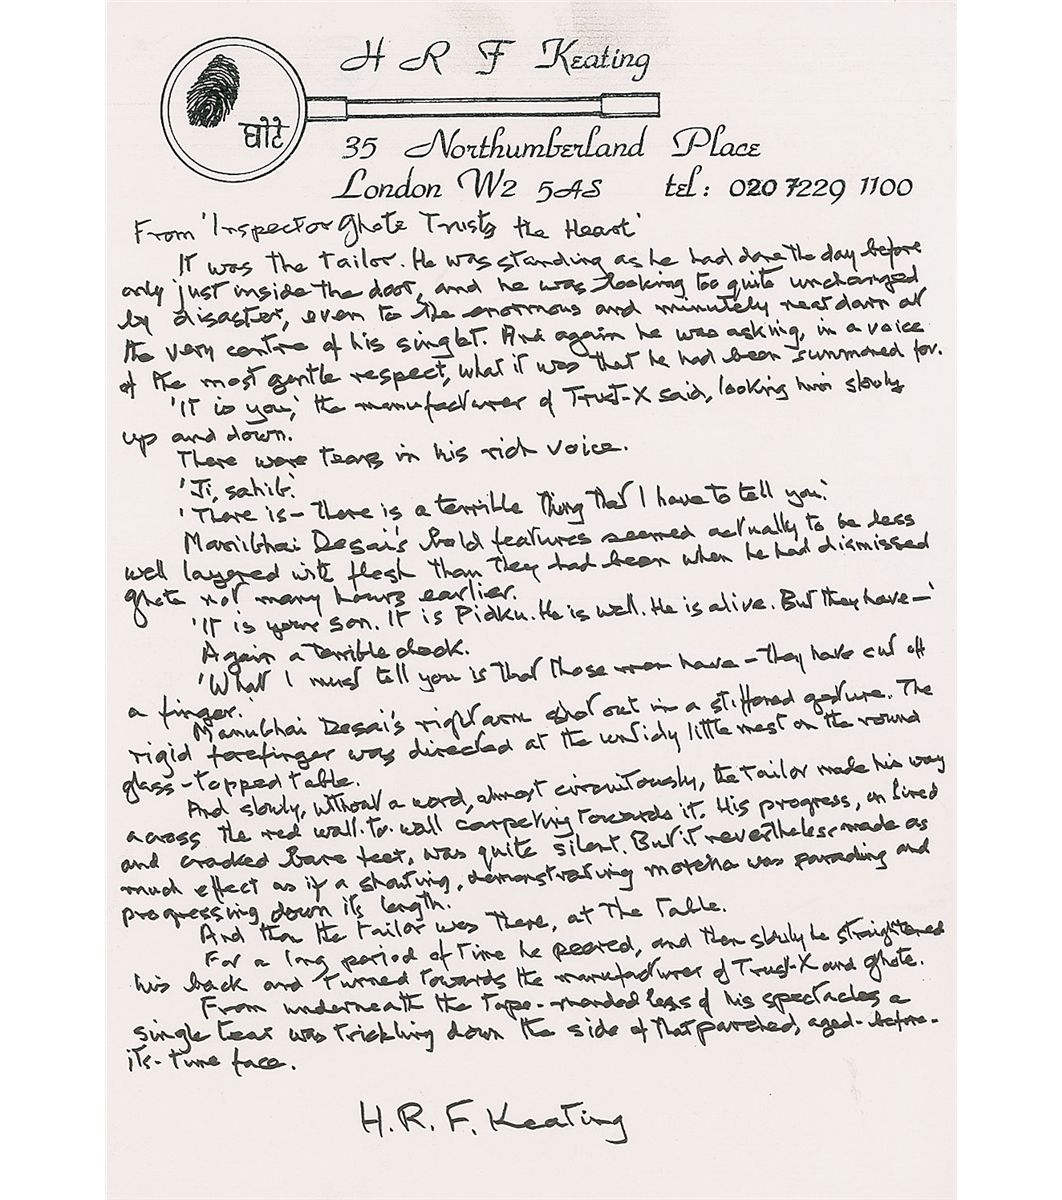 H R F Keating
घोटे
35 Northumberland Place
London W2 5AS tel: 020 7229 1100
From 'Inspector Ghote Trusts the Heart'
It was the tailor. He was standing as he had done the day before
only just inside the door, and he was looking too quite unchanged
by disaster, even to the enormous and minutely neat darn at
the very centre of his singlet. And again he was asking, in a voice
of the most gentle respect, what it was that he had been summoned for.
'It is you,' the manufacturer of Trust-X said, looking him slowly
up and down.
There were tears in his rich voice.
'Ji, sahib.'
'There is – there is a terrible thing that I have to tell you.'
Manibhai Desai's bold features seemed actually to be less
well layered with flesh than they had been when he had dismissed
Ghote not many hours earlier.
'It is your son. It is Pidku. He is well. He is alive. But they have –'
Again a terrible check.
'What I must tell you is that those men have – they have cut off
a finger.'
Manubhai Desai's right arm shot out in a stiffened gesture. The
rigid forefinger was directed at the untidy little nest on the round
glass-topped table.
And slowly, without a word, almost circuitously, the tailor made his way
across the red wall-to-wall carpeting towards it. His progress, on lined
and cracked bare feet, was quite silent. But it nevertheless made as
much effect as if a shouting, demonstrating morcha was parading and
progressing down its length.
And then the tailor was there, at the table.
For a long period of time he peered, and then slowly he straightened
his back and turned towards the manufacturer of Trust-X and Ghote.
From underneath the tape-mended legs of his spectacles a
single tear was trickling down the side of that parched, aged-before-
its-time face.
H.R.F. Keating